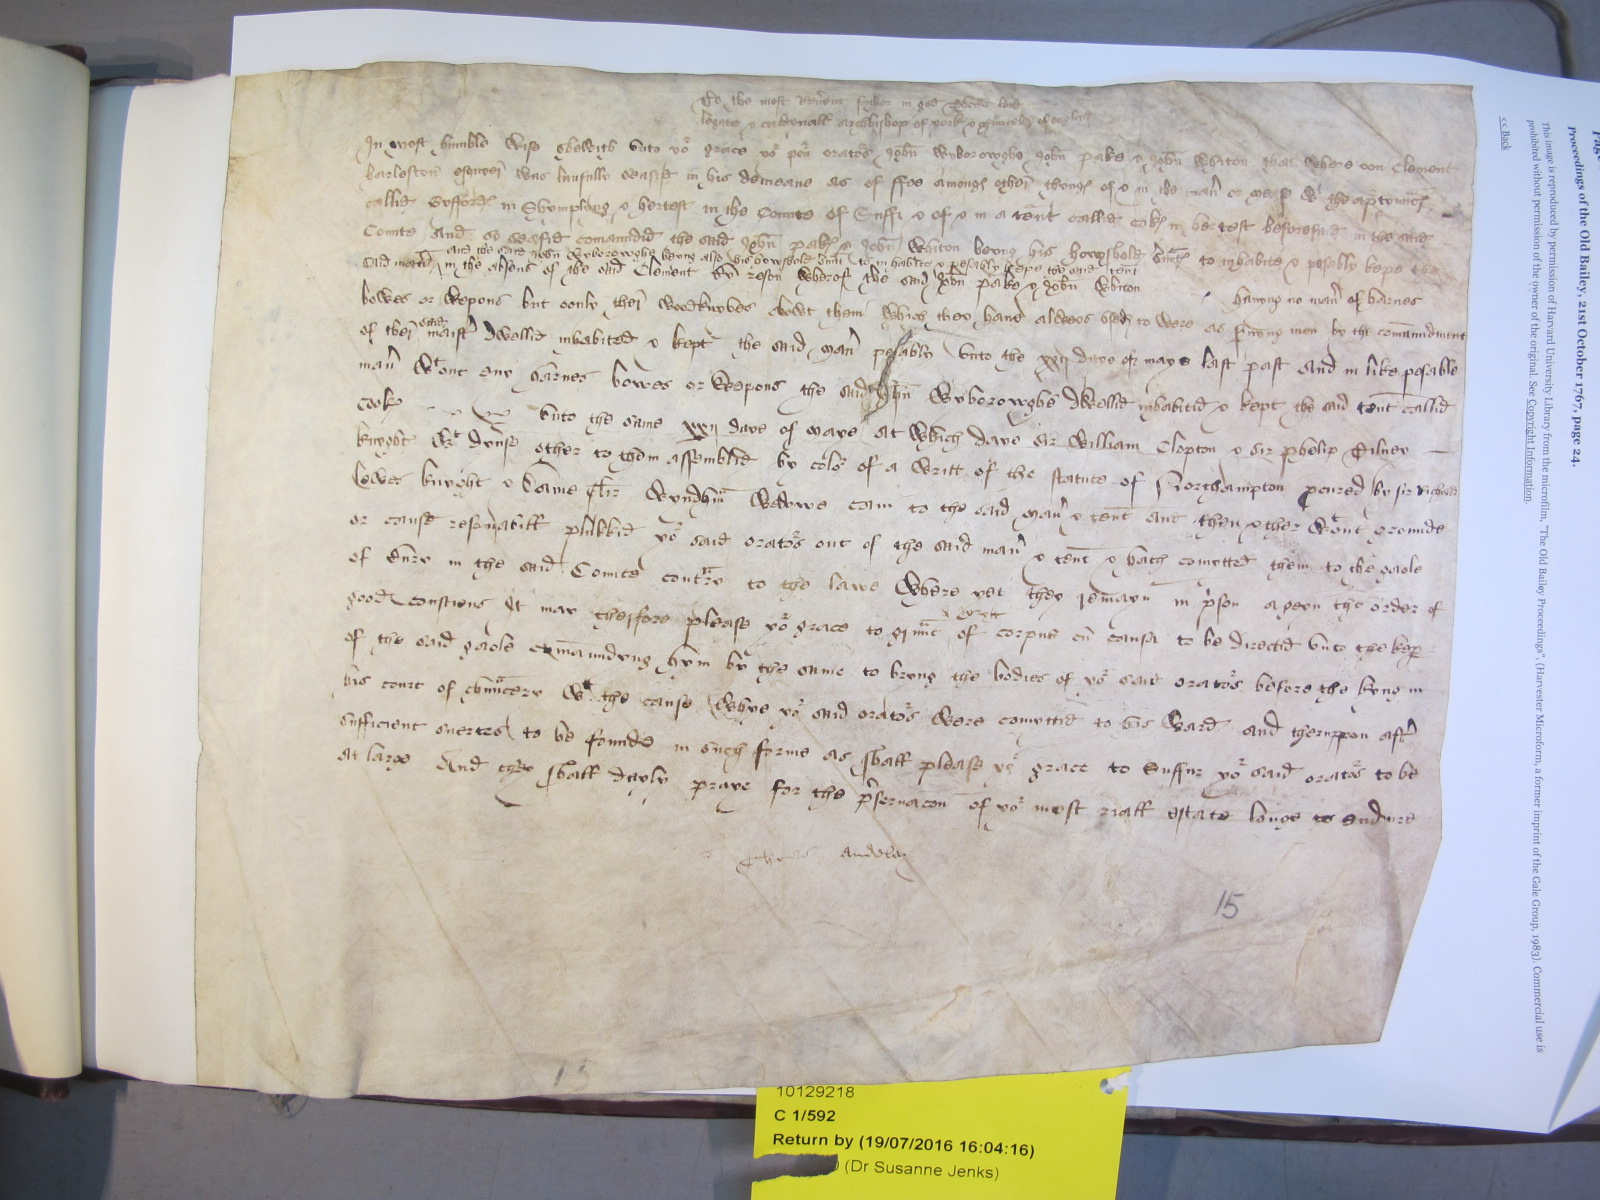 To the most reverent father in god Thomas lord
legate & cardynall archbishop of york & chaunceler of england
In most humble wise shewith unto yor grace yor pore orators John Wyborowghe John Pake & John Whiton that where oon Clement
Harleston esquier was laufully seased in his demeane as of ffee amongs other thyngs of & in the manr or mease wt the apprtnncs
callid Giffords in Shymplyng & hertest in the Comite of Suff & of & in a tent callid Coks in hertest beforesaid in the said
Comite And so seased comaundid the said John Pake & John Whiton beyng his howshold srunts to inhabite & pesably kepe the
and the said John Wyborowghe beyng also his howshold srunt to inhabite & pesably kepe the said tent
said manr in the absens of the said Clement by reson wherof the said John Pake & John Whiton havyng no manr of harnes
bowes or wepons but oonly ther woodknyves abowt them which they have alweys used to were as servyng men by the comaundment
of ther said maistr dwellid inhabited & kept the said manr pesably unto the xxij daye of maye last past And in like pesable
manr wtout any harnes bowes or wepons the said John Wyborowghe dwellid inhabitid & kept the said tent callid
Coks unto the same xxij daye of maye At which daye Sir William Clopton & Sir Phelip Tilney
knyght wt dyuse other to them assemblid by color of a writt of the statute of Northampton pcured by sir Richard
Lewes knyght & Dame Wyndhm Wedowe cam to the said manr & tent and then & ther wtout grounde
or cause resonabill plukkid yor said orators out of the said manr & tent & hath comytted them to the gaole
of Bury in the said Comite contrary to the lawe where yet they remayn in prson ageyn the order of
good consciens It may therfore please yor grace to graunt a wrytt of corpus cu causa to be directid unto the keper
of the said gaole comaundyng hym by the same to bryng the bodies of yor said orators before the kyng in
his court of chauncery wt the cause whye yor said orators were comyttid to his ward and theruppon aftr
sufficient suertes to be founde in such forme as shall please yor grace to suffur yor said orators to be
at large And they shall dayly praye for the prseruacon of yor most riall estate longe to endure
Thomas Audeley
15
15
10129218
C 1/592
Return by (19/07/2016 16:04:16)
(Dr Susanne Jenks)
Proceedings of the Old Bailey, 21st October 1767, page 24.
This image is reproduced by permission of Harvard University Library from the microfilm, "The Old Bailey Proceedings", (Harvester Microform, a former imprint of the Gale Group, 1983). Commercial use is
prohibited without permission of the owner of the original. See Copyright Information.
<< Back